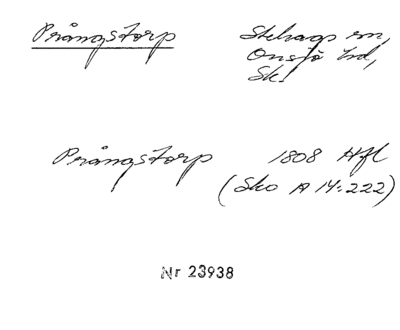 Prångstorp
Stehags sn,
Onsjö hd,
Sk.
Prångstorp 1808 Hfl
(Sko A 14:222)
Nr 23938